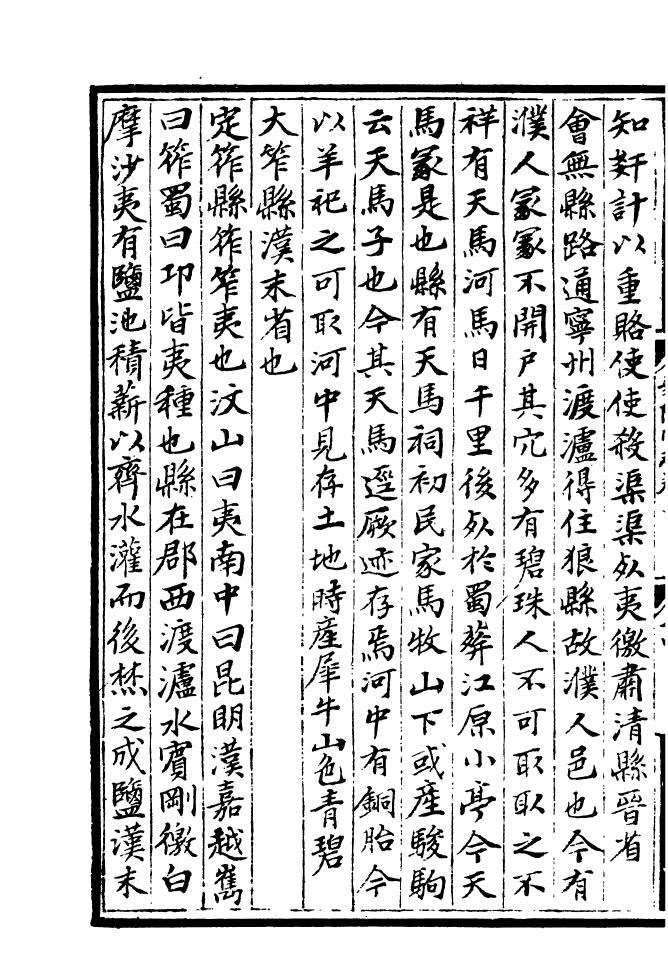 知奸計以重賂使使殺渠渠死夷徼肅清縣晉省
會無縣路通寧州渡瀘得住狼縣故濮人邑也今有
濮人冢冢不開戸其穴多有碧珠人不可取取之不
祥有天馬河馬日千里後死於蜀葬江原小亭今天
馬冢是也縣有天馬祠初民家馬牧山下或產駿駒
云天馬子也今其天馬逕厥迹存焉河中有銅胎今
以羊祀之可取河中見存土地時產犀牛山色青碧
大筰縣漢末省也
定筰縣筰笮夷也汶山曰夷南中曰昆明漢嘉越嶲
曰筰蜀曰卭皆夷種也縣在郡西渡瀘水賓剛徼白
摩沙夷有鹽池積薪以齊水灌而後焚之成鹽漢末